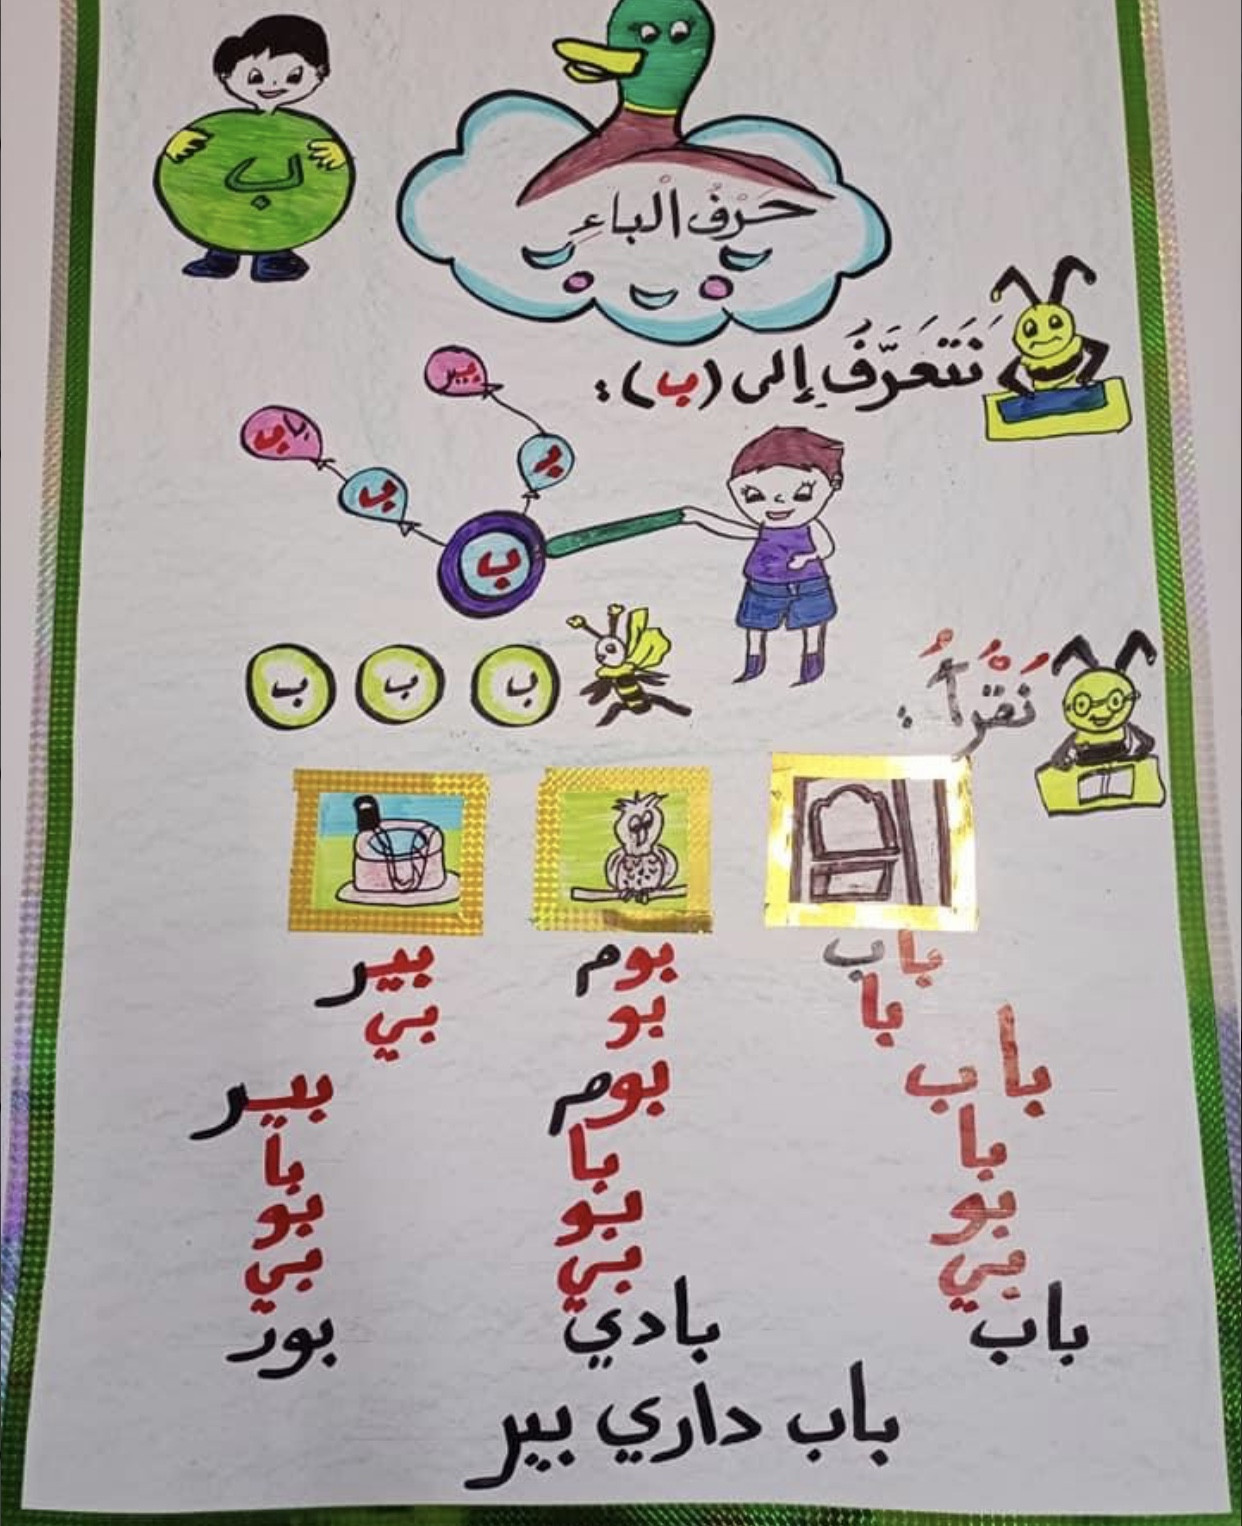 ب
حَرْفُ الْباءِ
نَتَعَرَّفُ إِلى (ب):
بير
باب
بـ
ب
ب
ب ب ب
نَقْرَأُ:
باب بوم بير
با بو بي
باب بوم بير
با با با
بو بو بو
بي بي بي
باب بادي بور
باب داري بير